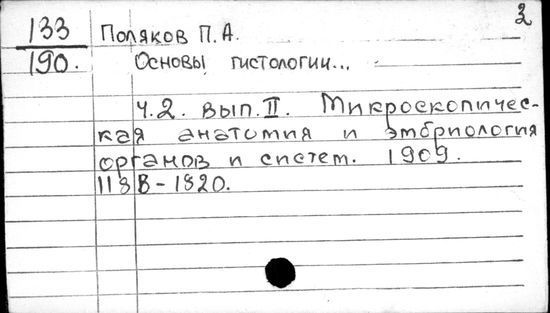 3
133 Поляков П. А.
190. Основы гистологии...
Ч.2. вып. II. Микроскопичес-
кая анатомия и эмбриология
органов и систем. 1909.
1188-1820.